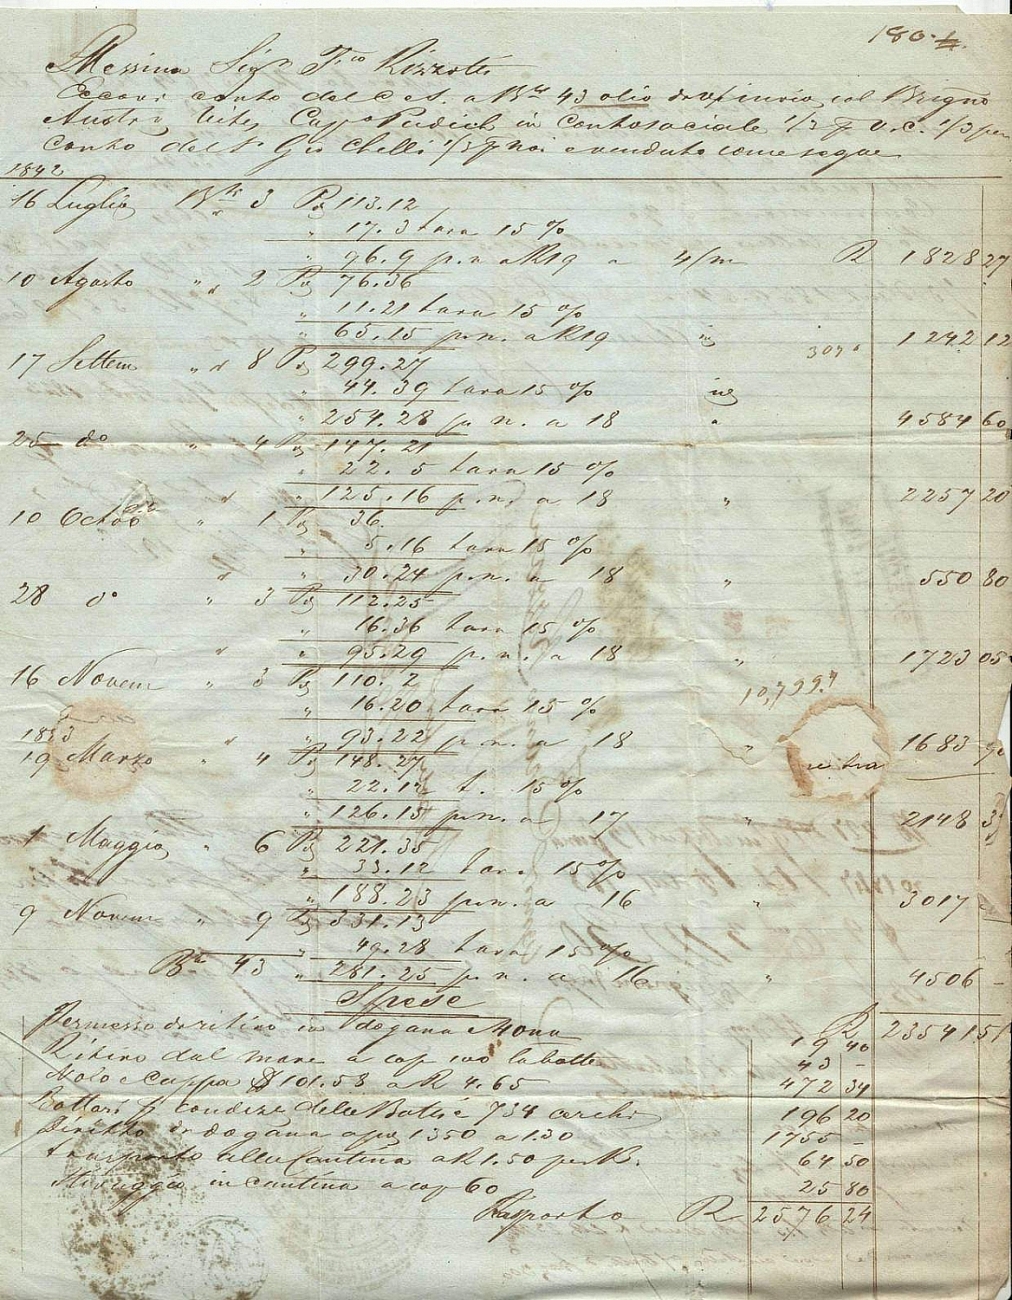 180
Messina Sigr Fco Rizzotti
conto del a Btt 43 olio col Brigno
Austro Capo in contosociale 1/3 p v. c. 1/3 per
conto del Sr Gio Chelli 1/3 p noi e venduto come segue
1842
16 Luglio Btte 3 P 113.12
" 17. 3 tara 15 %
" 96.9 p.n. a R 19 a 4/m R 1828 27
10 Agosto " 2 P 76.36
" 11.21 tara 15 %
" 65.15 p.n. a R 19 1242 12
17 Settem " 8 P 299.27
" 44. 39 tara 15 %
" 254.28 p n. a 18 " 4584 60
25 do " 4 P 147.21
" 22. 5 tara 15 %
" 125.16 p.n. a 18 " 2257 20
10 Octob " 1 P 36.
5.16 tara 15 %
" 30.24 p.n. a 18 " 550 80
28 do " 3 P 112.25
16.36 tara 15 %
" 95.29 p.n. a 18 " 1723 05
16 Novem " 3 P 110. 2
" 16.20 tara 15 %
" 93.22 p.n. a 18 " 1683 90
10,799.
1843
19 Marzo " 4 P 148.27
" 22.12 t. 15 %
" 126.15 p.n. a 17 " 2148 3
1 Maggio " 6 P 221.35
" 33.12 tara 15 %
" 188.23 p.n. a 16 " 3017
9 Novem " 9 P 331.13
" 49.28 tara 15 %
Btte 43 " 281.25 p.n. a 16 " 4506 –
Spese R 23541 51
Permesso di ritiro in dogana Mona 19 40
Ritiro dal mare a cop 100 la botte 43 –
Nolo e Cappa $ 101.58 a R 4.65 472 34
Bottari p condire delle Botti è 734 cerchi 196 20
Diritto in dogana a pu 1350 a 1.30 1755 –
trasporto alla Cantina a R 1.50 per B. 64 50
Stivaggio in cantina a cop 60 25 80
Rapporto R 2576 24